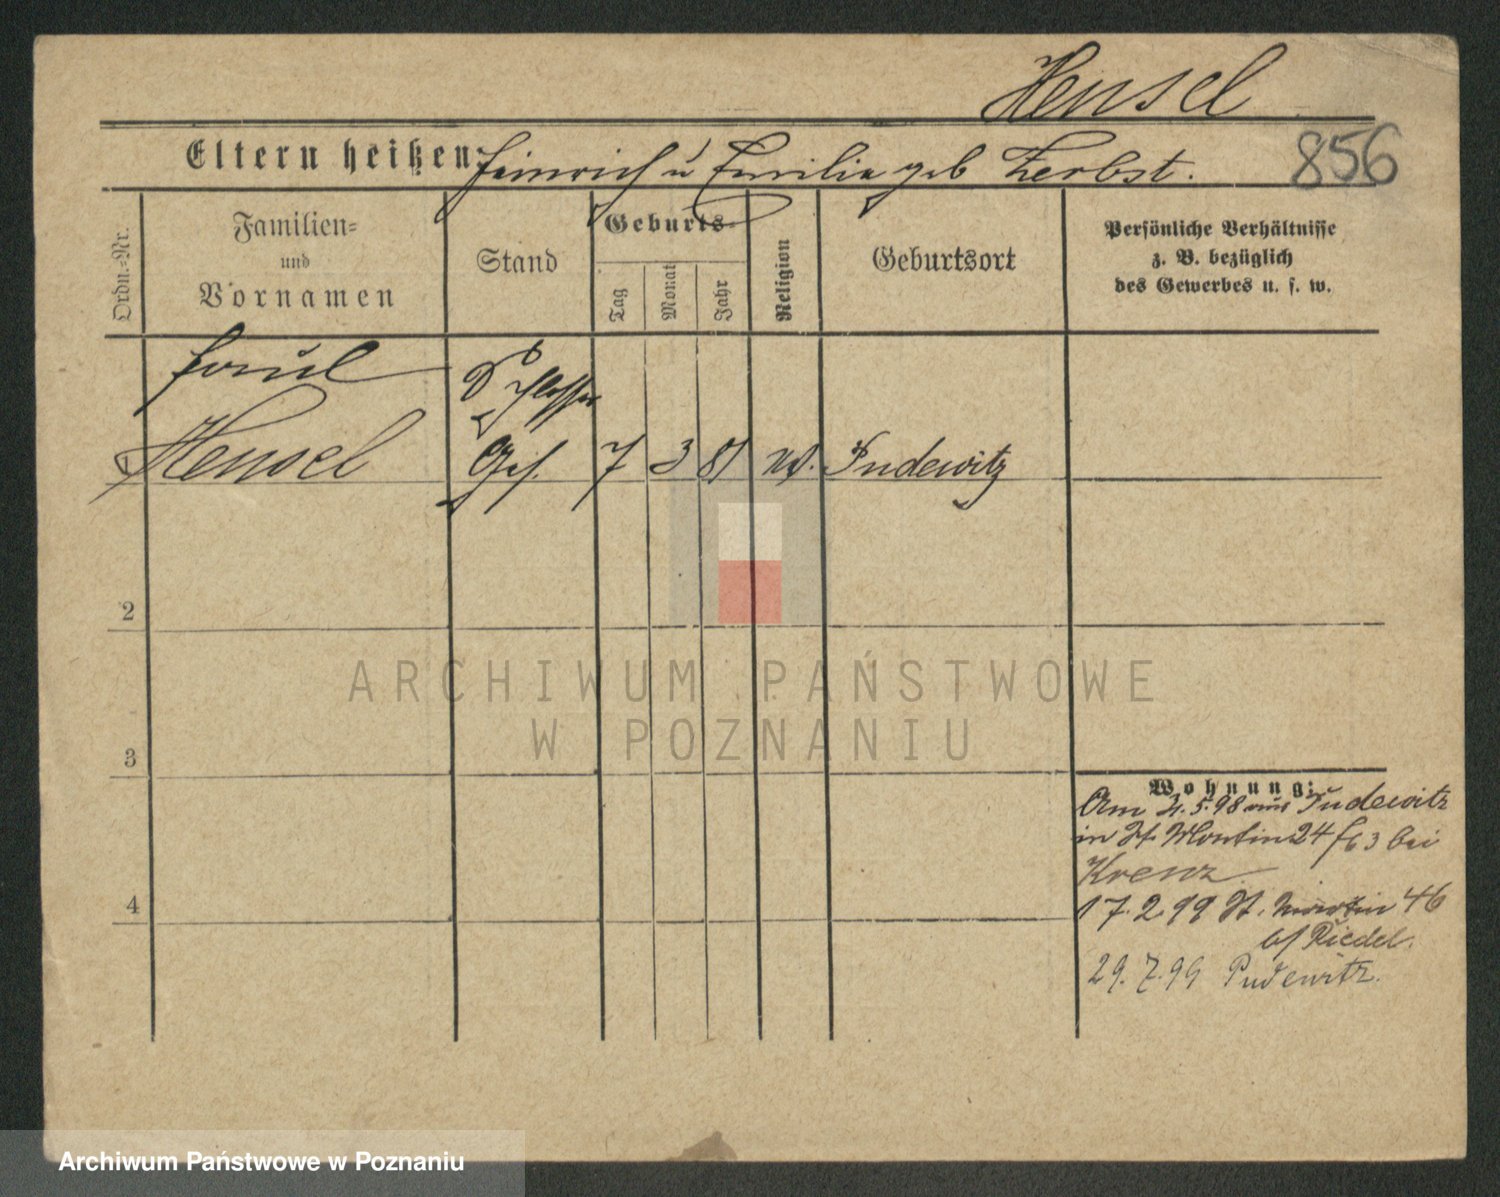 Hensel
Eltern heißen: Heinrich u Emilie geb Zerbst.
856
Ordn.-Nr.
Familien-
und
Vornamen
Stand
Geburts-
Tag
Monat
Jahr
Religion
Geburtsort
Persönliche Verhältnisse
z. B. bezüglich
des Gewerbes u. s. w.
Schlosser
Hensel
Ges. 7 3 81 Pudewitz
2
3
4
ARCHIWUM PAŃSTWOWE
W POZNANIU
Wohnung:
Am 4.5.98 aus Pudewitz
in St Martin 24 bei
Krenz
17.2.99 St. Martin 46
b/ Riedel.
29.7.99 Pudewitz.
Archiwum Państwowe w Poznaniu